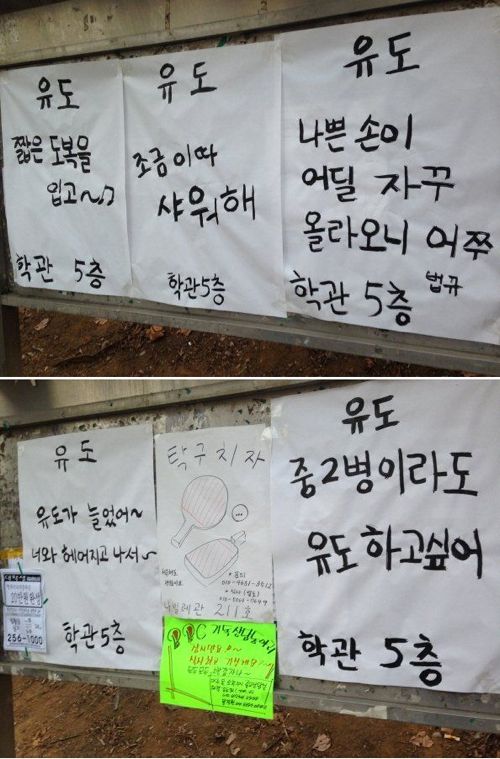 유도
짧은 도복을
입고~♪
학관 5층
유도
조금이따
샤워해
학관5층
유도
나쁜 손이
어딜 자꾸
올라오니 어쭈
법규
학관 5층
유도
유도가 늘었어~
너와 헤어지고 나서~
학관5층
256-1000
탁구치자
211호
유도
중2병이라도
유도 하고싶어
학관 5층